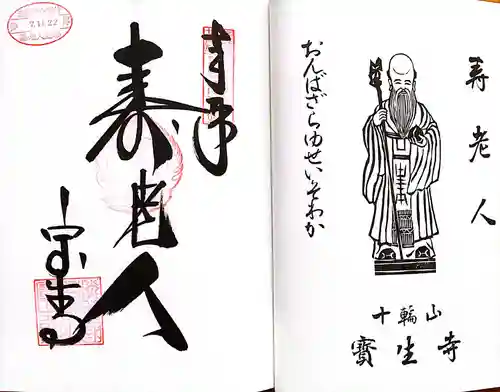 2.11.22
奉拝
寿老人
宝生寺
寿老人
おんばざらゆせいそわか
十輪山
寳生寺